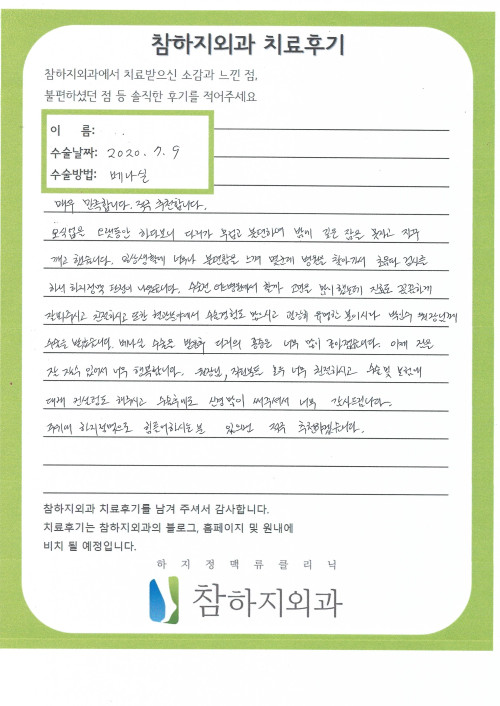 참하지외과 치료후기
참하지외과에서 치료받으신 소감과 느낀 점,
불편하셨던 점 등 솔직한 후기를 적어주세요
이 름:
수술날짜: 2020. 7. 9
수술방법: 베나실
매우 만족합니다. 적극 추천합니다.
요식업은 오랫동안 하다보니 다리가 무겁고 불편하여 밤에 깊은 잠을 못자고 자꾸
깨고 했습니다. 일상생활에 너무나 불편함을 느껴 몇군데 병원을 찾아가서 초음파 검사를
하니 하지정맥 진단이 나왔습니다. 수술전 어느병원에서 할까 고민을 많이 했는데 진료도 꼼꼼하게
잘봐주시고 친절하시고 또한 혈관분야에서 수술경험도 많으시고 굉장히 유명한 분이시라 박인수 원장님께
수술을 받았습니다. 베나실 수술은 받은후 다리의 통증은 너무 많이 좋아졌습니다. 이제 잠은
잘 잘수 있어서 너무 행복합니다. 원장님, 직원분들 모두 너무 친절하시고 수술및 보험에
대해 진실성도 해주시고 수술후에도 신경많이 써주셔서 너무 감사드립니다.
주위에 하지정맥으로 힘들어하시는분 있으면 적극 추천하겠습니다.
참하지외과 치료후기를 남겨 주셔서 감사합니다.
치료후기는 참하지외과의 블로그, 홈페이지 및 원내에
비치 될 예정입니다.
하지정맥류클리닉
참하지외과